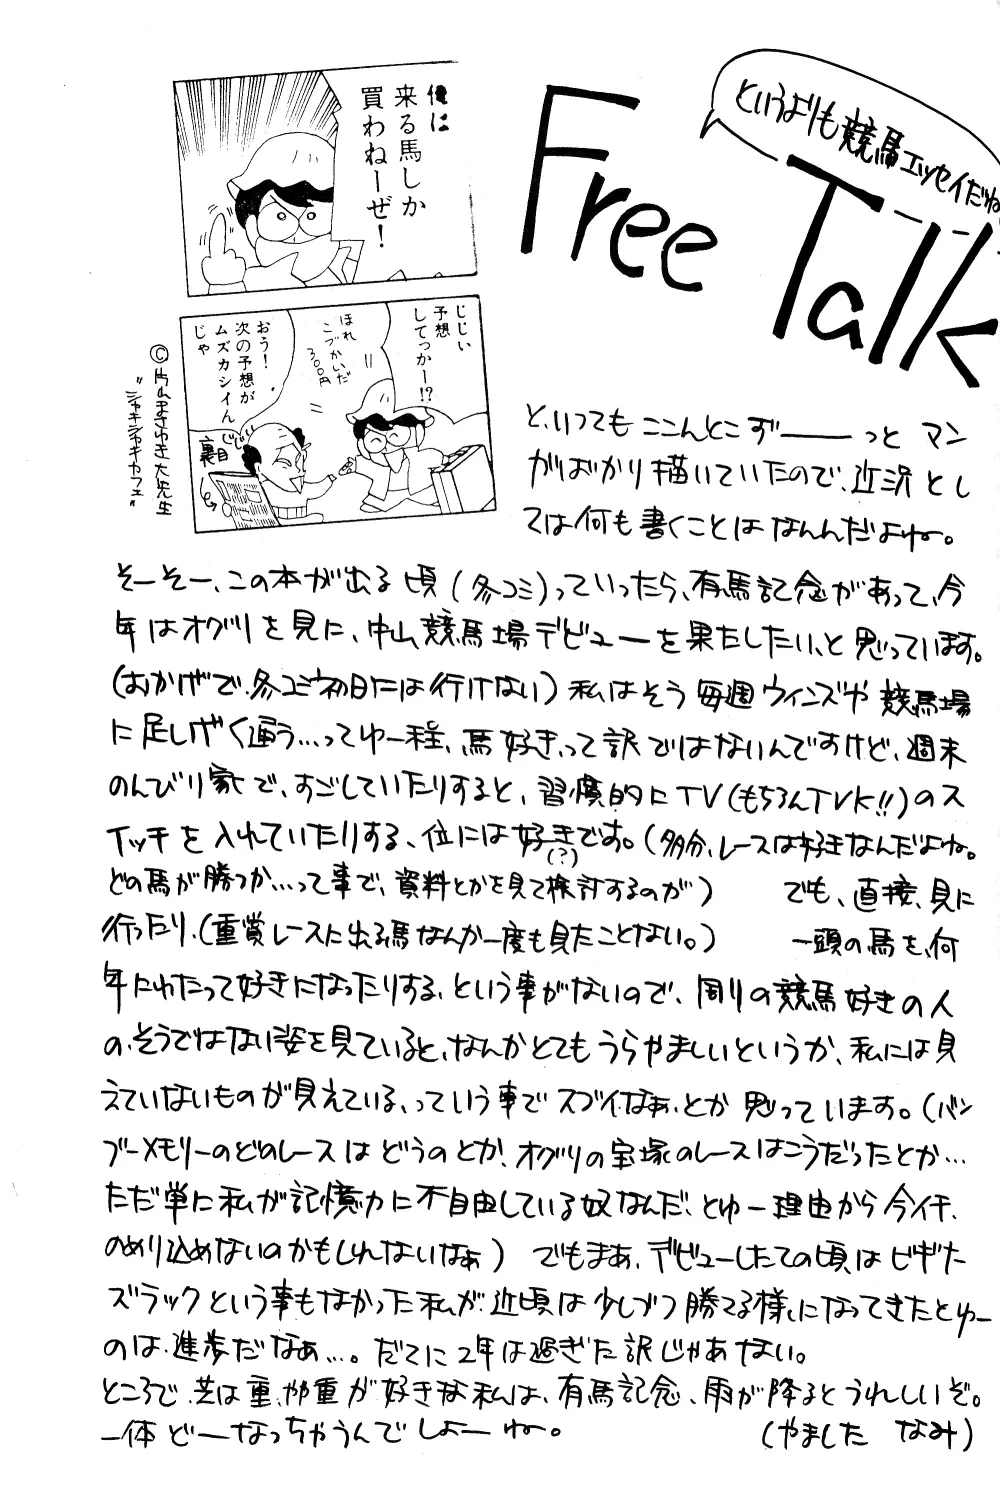 Free Talk
というよりも競馬エッセイだね
俺に
来る馬しか
買わねーぜ!
じじい
予想
してっかー!?
ほれ
こづかいだ
300円
おう!
次の予想が
ムズカシイん
じゃ
裏目
©片山まさゆき大先生
"シャキシャキカフェ"
と、いっても ここんとこず――っと マン
がばかり描いていたので、近況とし
ては何も書くことはなんだよね。
そーそー、この本が出る頃(冬コミ)っていったら、有馬記念があって、今
年はオグリを見に、中山競馬場デビューを果たしたい、と思っています。
(おかげで、冬コミ初日には行けない) 私はそう毎週ウィンズや競馬場
に足しげく通う…ってゆー程、馬好き、って訳ではないんですけど、週末
のんびり家で、すごしていたりすると、習慣的にTV(もちろんTVK!!)のス
イッチを入れていたりする、位には好きです。(多分、レースは好きなんだよね。
(?)
どの馬が勝つか…って事で、資料とかを見て検討するのが) でも、直接、見に
行ったり、(重賞レースに出る馬なんか一度も見たことない。) 一頭の馬を、何
年にわたって好きになったりする、という事がないので、周りの競馬好きの人
の、そうではない姿を見ていると、なんかとてもうらやましいというか、私には見
えていないものが見えている、っていう事でスゴイなぁ、とか思っています。(バン
ブーメモリーのどのレースはどうのとか、オグリの宝塚のレースはこうだったとか…
ただ単に私が記憶力に不自由している奴なんだ、とゆー理由から今イチ、
のめり込めないのかもしれないなぁ) でもまぁ、デビューしたての頃はビギナー
ズラックという事もなかった私が、近頃は少しづつ勝てる様になってきたとゆー
のは、進歩だなぁ…。だてに2年は過ぎた訳じゃあない。
ところで、芝は重、やや重が好きな私は、有馬記念、雨が降るとうれしいぞ。
一体どーなっちゃうんでしょーね。 (やました なみ)